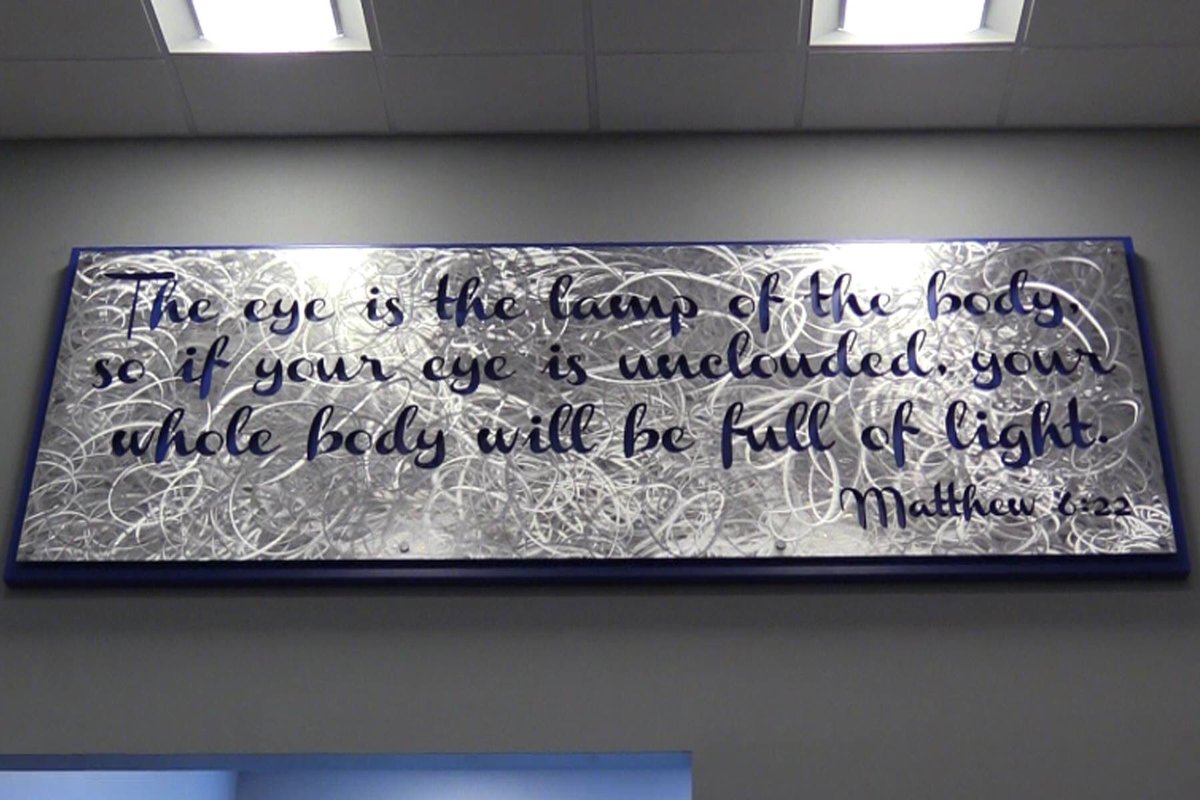 The eye is the lamp of the body,
so if your eye is unclouded, your
whole body will be full of light.
Matthew 6:22